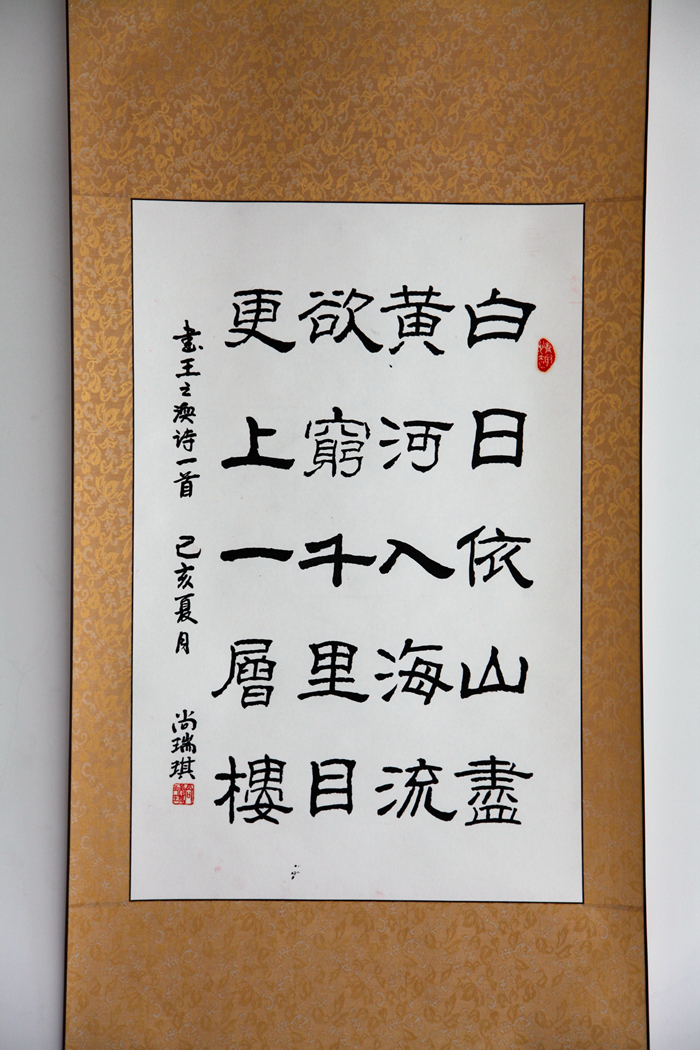 白日依山盡
黄河入海流
欲窮千里目
更上一層樓
书王之渙诗一首 己亥夏月 尚瑞琪